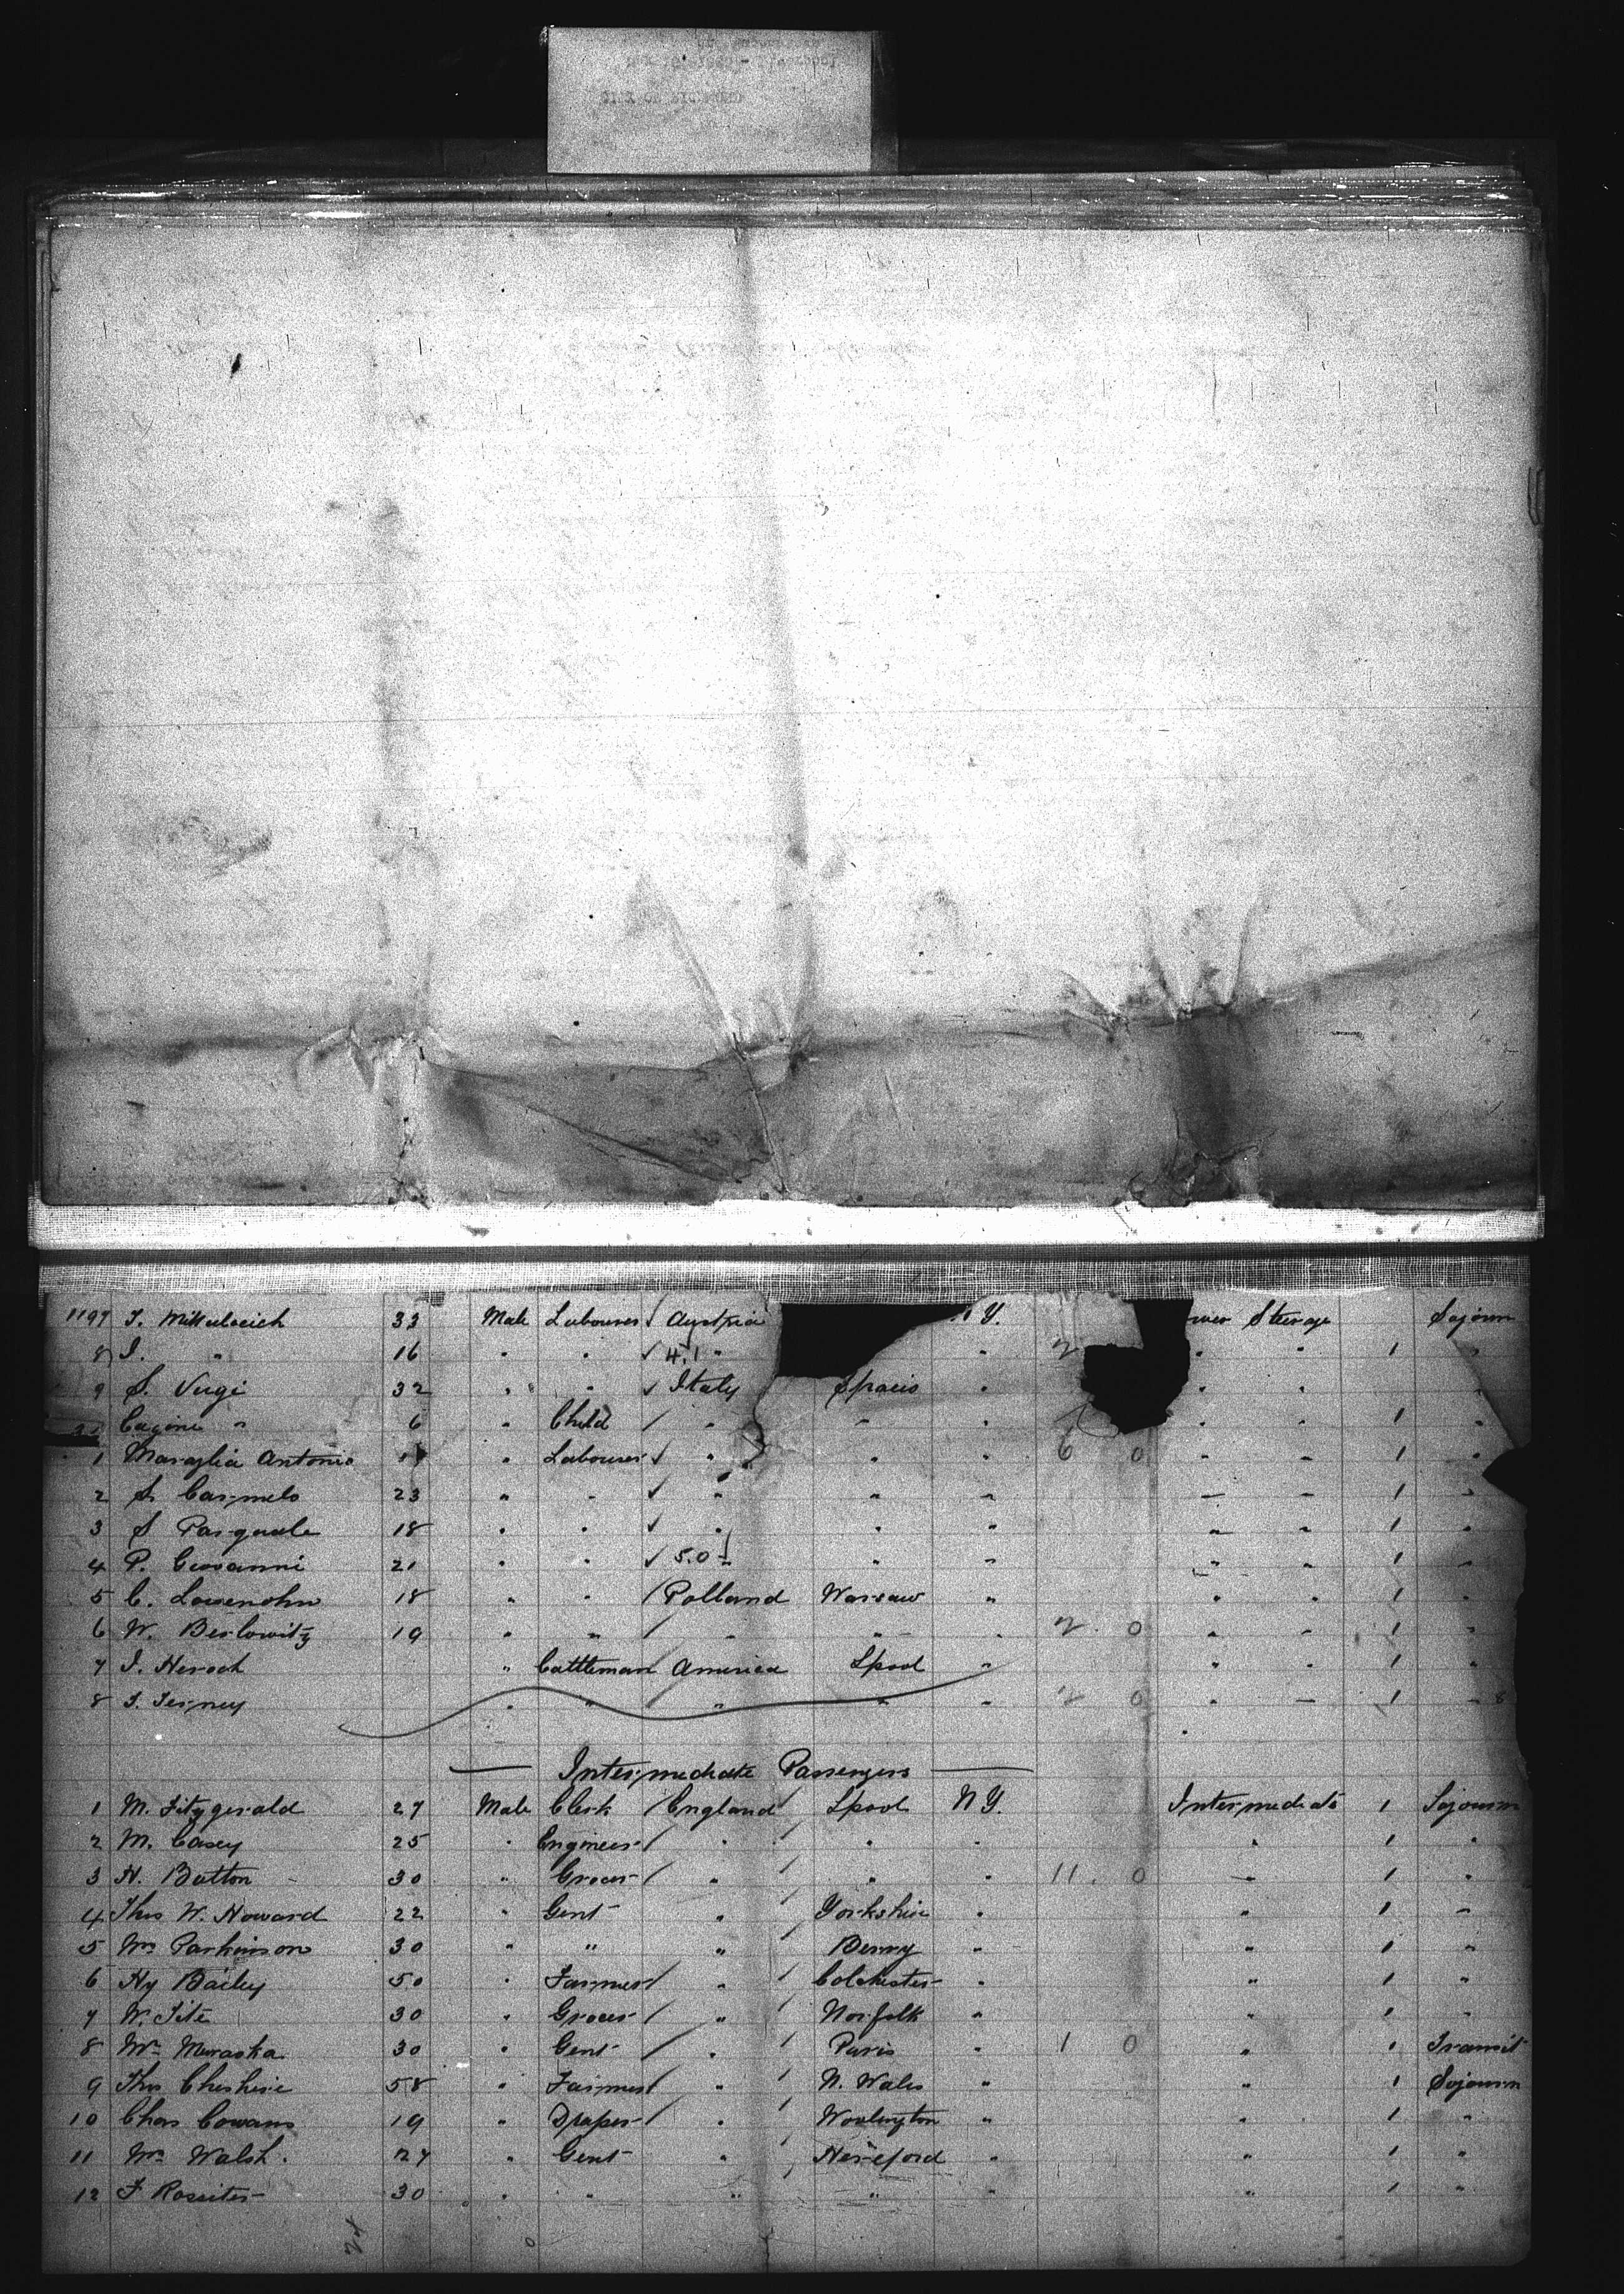 1197 J. Millulacich 33 Male Labourer ✓ Austria N.Y. Lower Steerage Sojourn
8 J. " 16 " " ✓ 4.1 " " 2 " " 1 "
9 S. Vugi 32 " " ✓ Italy Spacio " " " "
6 " Child / " " " " " 1 "
1 Antonio " Labourer ✓ " " " 6 0 " " 1 "
2 S. Carmelo 23 " " ✓ " " " " " 1 "
3 S Pasquale 18 " " ✓ " " " " " 1 "
4 P. Giovanni 21 " " ✓ 5.0 " " " " " 1 "
5 C. Lowenohn 18 " " / Polland Warsaw " " " 1 "
6 W. Berlowitz 19 " " / " " " 2 . 0 " " 1 "
7 I. Heroch " Cattleman America Lpool " " " 1 "
8 J. Terney " " / " " " 2 0 " " 1 " 8
Intermediate Passengers
1 M. Fitzgerald 27 Male Clerk / England / Lpool N.Y. Intermediate 1 Sojourn
2 M. Casey 25 " Engineer / " / " " " 1 "
3 H. Batton 30 " Grocer / " / " " 11 . 0 " 1 "
4 Thos W. Howard 22 " Gent " / Yorkshire " " 1 "
5 Wm Parkinson 30 " " " / " " 1 "
6 Hy Bailey 50 " Farmer / " / Colchester " " 1 "
7 W. Tite 30 " Grocer / " / Norfolk " " 1 "
8 Wm 30 " Gent / " / Paris " 1 0 " 1 Transit
9 Thos Cheshire 58 " Farmer / " / N. Wales " " 1 Sojourn
10 Chas Cowans 19 " Draper / " / " " 1 "
11 Wm Walsh. 27 " Gent " / Hereford " " 1 "
12 F Rossiter 30 " " " / " " " 1 "